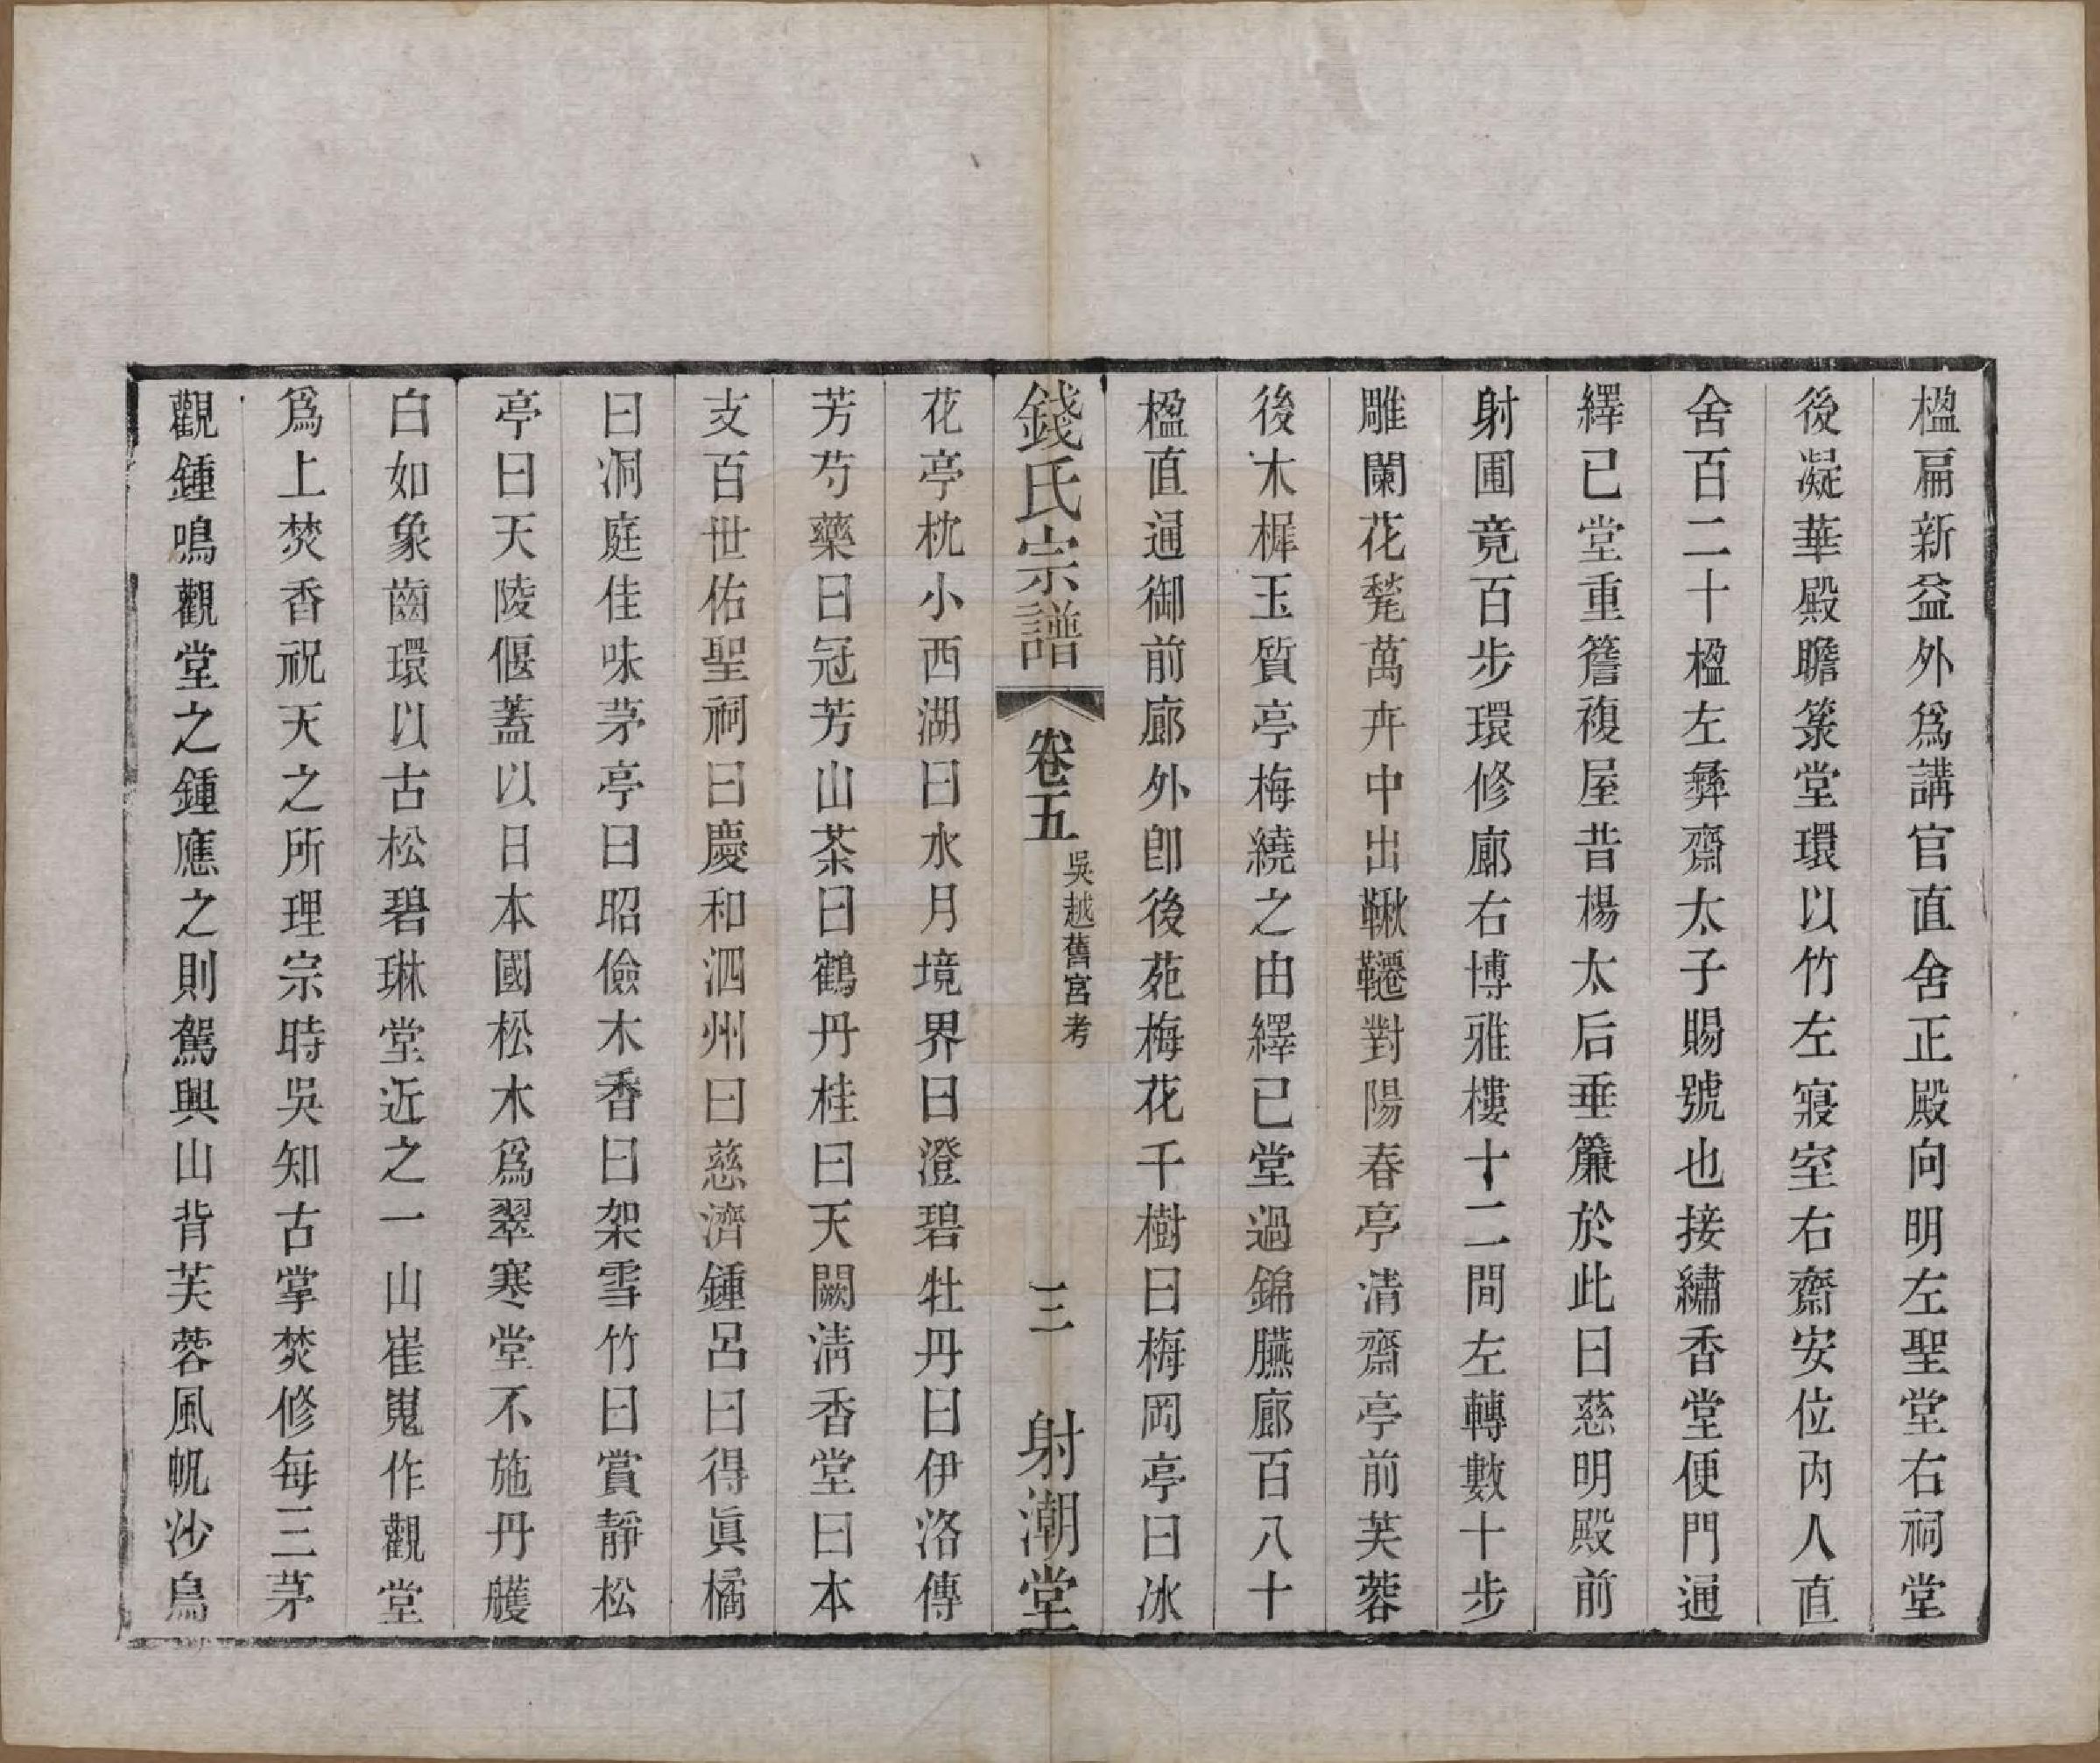 楹扁新益外爲講官直舍正殿向明左聖堂右祠堂
後凝華殿瞻箓堂環以竹左寢室右齋安位內人直
舍百二十楹左彝齋太子賜號也接繡香堂便門通
繹已堂重簷複屋昔楊太后垂簾於此曰慈明殿前
射圃竟百步環修廊右博雅樓十二間左轉數十步
雕闌花甃萬卉中出鞦韆對陽春亭清齋亭前芙蓉
後木樨玉質亭梅繞之由繹已堂過錦臙廊百八十
楹直通御前廊外卽後苑梅花千樹曰梅岡亭曰冰
錢氏宗譜 卷五 吳越舊宮考 三 射潮堂
花亭枕小西湖曰水月境界曰澄碧牡丹曰伊洛傳
芳芍藥曰冠芳山茶曰鶴丹桂曰天闕淸香堂曰本
支百世佑聖祠曰慶和泗州曰慈濟鍾呂曰得眞橘
曰洞庭佳味茅亭曰昭儉木香曰架雪竹曰賞靜松
亭曰天陵偃蓋以日本國松木爲翠寒堂不施丹艧
白如象齒環以古松碧琳堂近之一山崔嵬作觀堂
爲上焚香祝天之所理宗時吳知古掌焚修每三茅
觀鍾鳴觀堂之鍾應之則駕興山背芙蓉風帆沙鳥